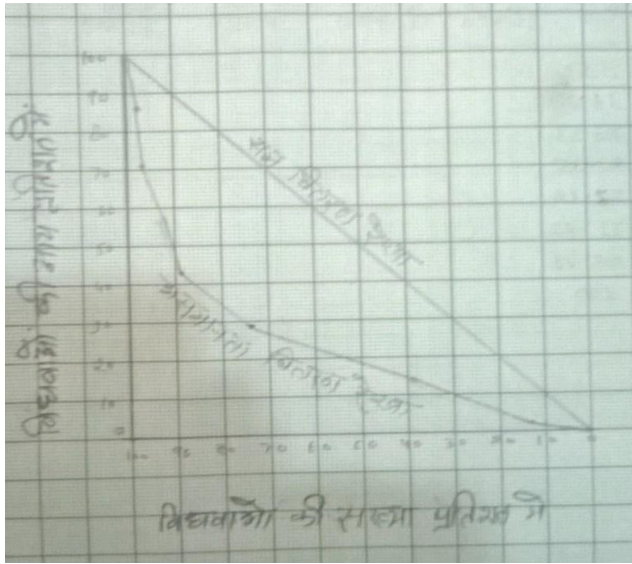 100
90
80
70
60
50
40
30
20
10
0
सम वितरण रेखा
असमानता वितरण रेखा
100 90 80 70 60 50 40 30 20 10 0
विधवाओं की संख्या प्रतिशत में